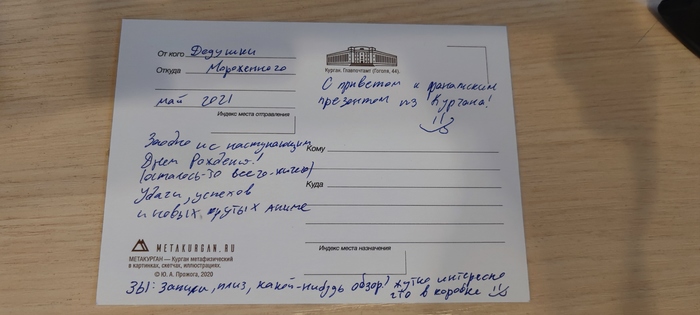 От кого Дедушки
Откуда Мороженного
май 2021
Индекс места отправления
Курган. Главпочтамт (Гоголя, 44).
С приветом и фанатским
презентом из Кургана!
Заодно и с наступающим
Днем Рождения!
(осталось-то всего-ничего)
Удачи, успехов
и новых крутых аниме
Кому
Куда
METAKURGAN.RU
МЕТАКУРГАН — Курган метафизический
в картинках, скетчах, иллюстрациях.
© Ю. А. Прожога, 2020
Индекс места назначения
ЗЫ: Запили, плиз, какой-нибудь обзор! жутко интересно
что в коробке